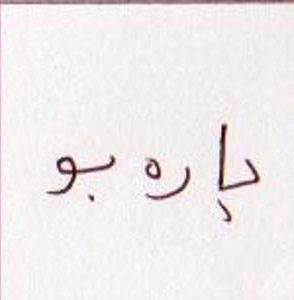 پاره بو